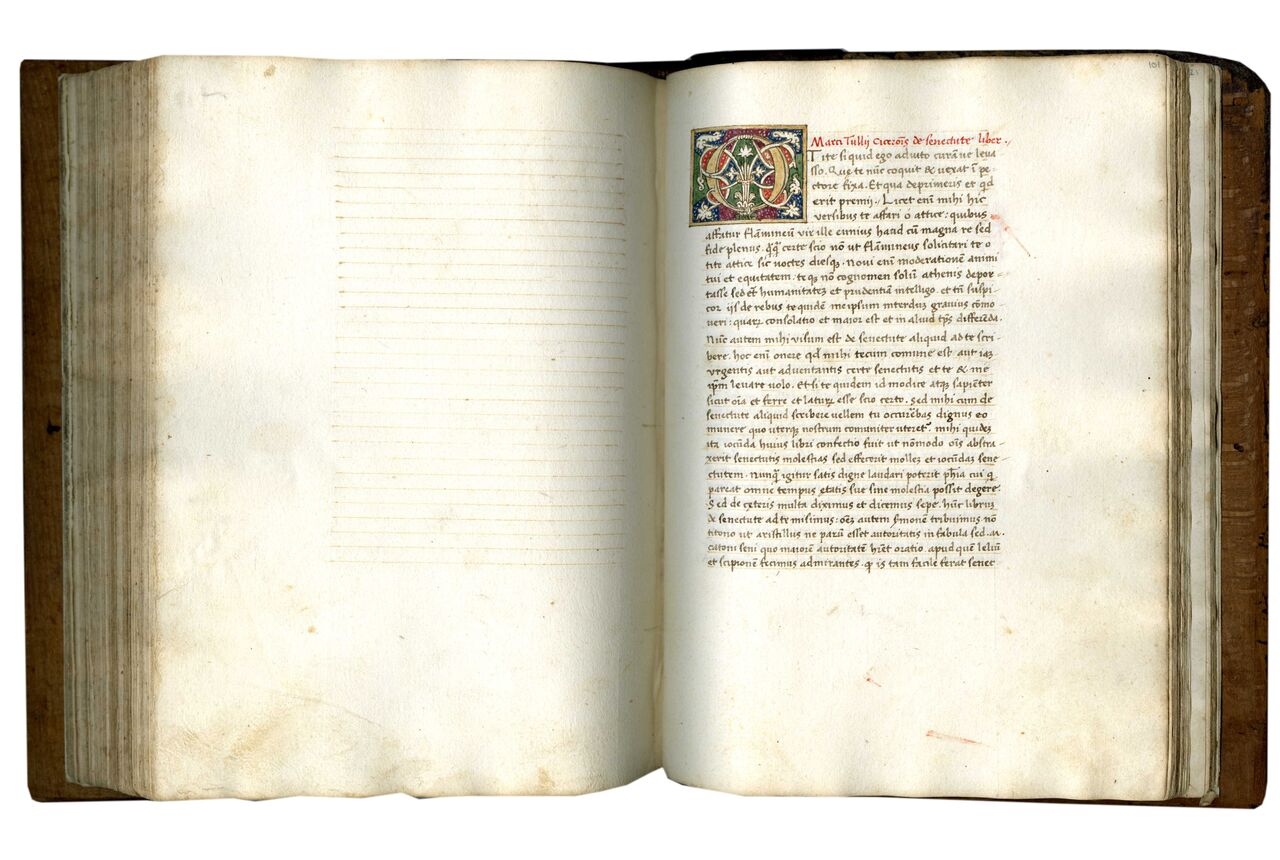 101
Marci Tullij Ciceroīs de senectute liber.
O Tite si quid ego adiuto curāue leua
sso. Que te nūc coquit & uexat ī pe-
ctore fixa. Et qua deprimeris et qd
erit premij. Licet enī mihi hic
versibus te affari o attice: quibus
affatur flāmineū vir ille ennius haud cū magna re sed
fide plenus. certe scio nō ut flāmineus solicitari te o
tite attice sic noctes diesq. Novi enī moderationē animi
tui et equitatem. teq nō cognomen solū athenis depor-
tasse sed et humanitatez et prudentiā intelligo. et tn̄ suspi-
cor ijs de rebus te quidē meipsum interduz gravius cōmo
ueri: quarꝝ consolatio et maior est et in aliud tp̄s differēda.
Nūc autem mihi visum est de senectute aliquid ad te scri-
bere. hoc enī onere qd mihi tecum comune est aut iaz
vrgentis aut adventantis certe senectutis et te & me
ip̄m levare volo. Et si te quidem id modice atq sapiēter
sicut oīa et ferre et laturꝝ esse scio certo. Sed mihi cum de
senectute aliquid scribere vellem tu occurēbas dignus eo
munere quo uterq nostrum comuniter uteret. mihi quidez
ita iocūda huius libri confectio fuit ut nōmodo oīs abstra-
xerit senectutis molestias sed effecerit mollez et iocūdaz sene-
ctutem. nunq igitur satis digne laudari poterit ph̄ia cui q
pareat omne tempus etatis sue sine molestia possit degere.
Sed de ceteris multa diximus et dicemus sepe. hūc librum
de senectute ad te misimus: autem sermonē tribuimus nō
titono ut aristillus ne parū esset autoritatis in fabula sed .M.
catoni seni quo maiorē autoritatē hrēt oratio. apud quē leliū
et scipionē fecimus admirantes. q is tam facile ferat senec